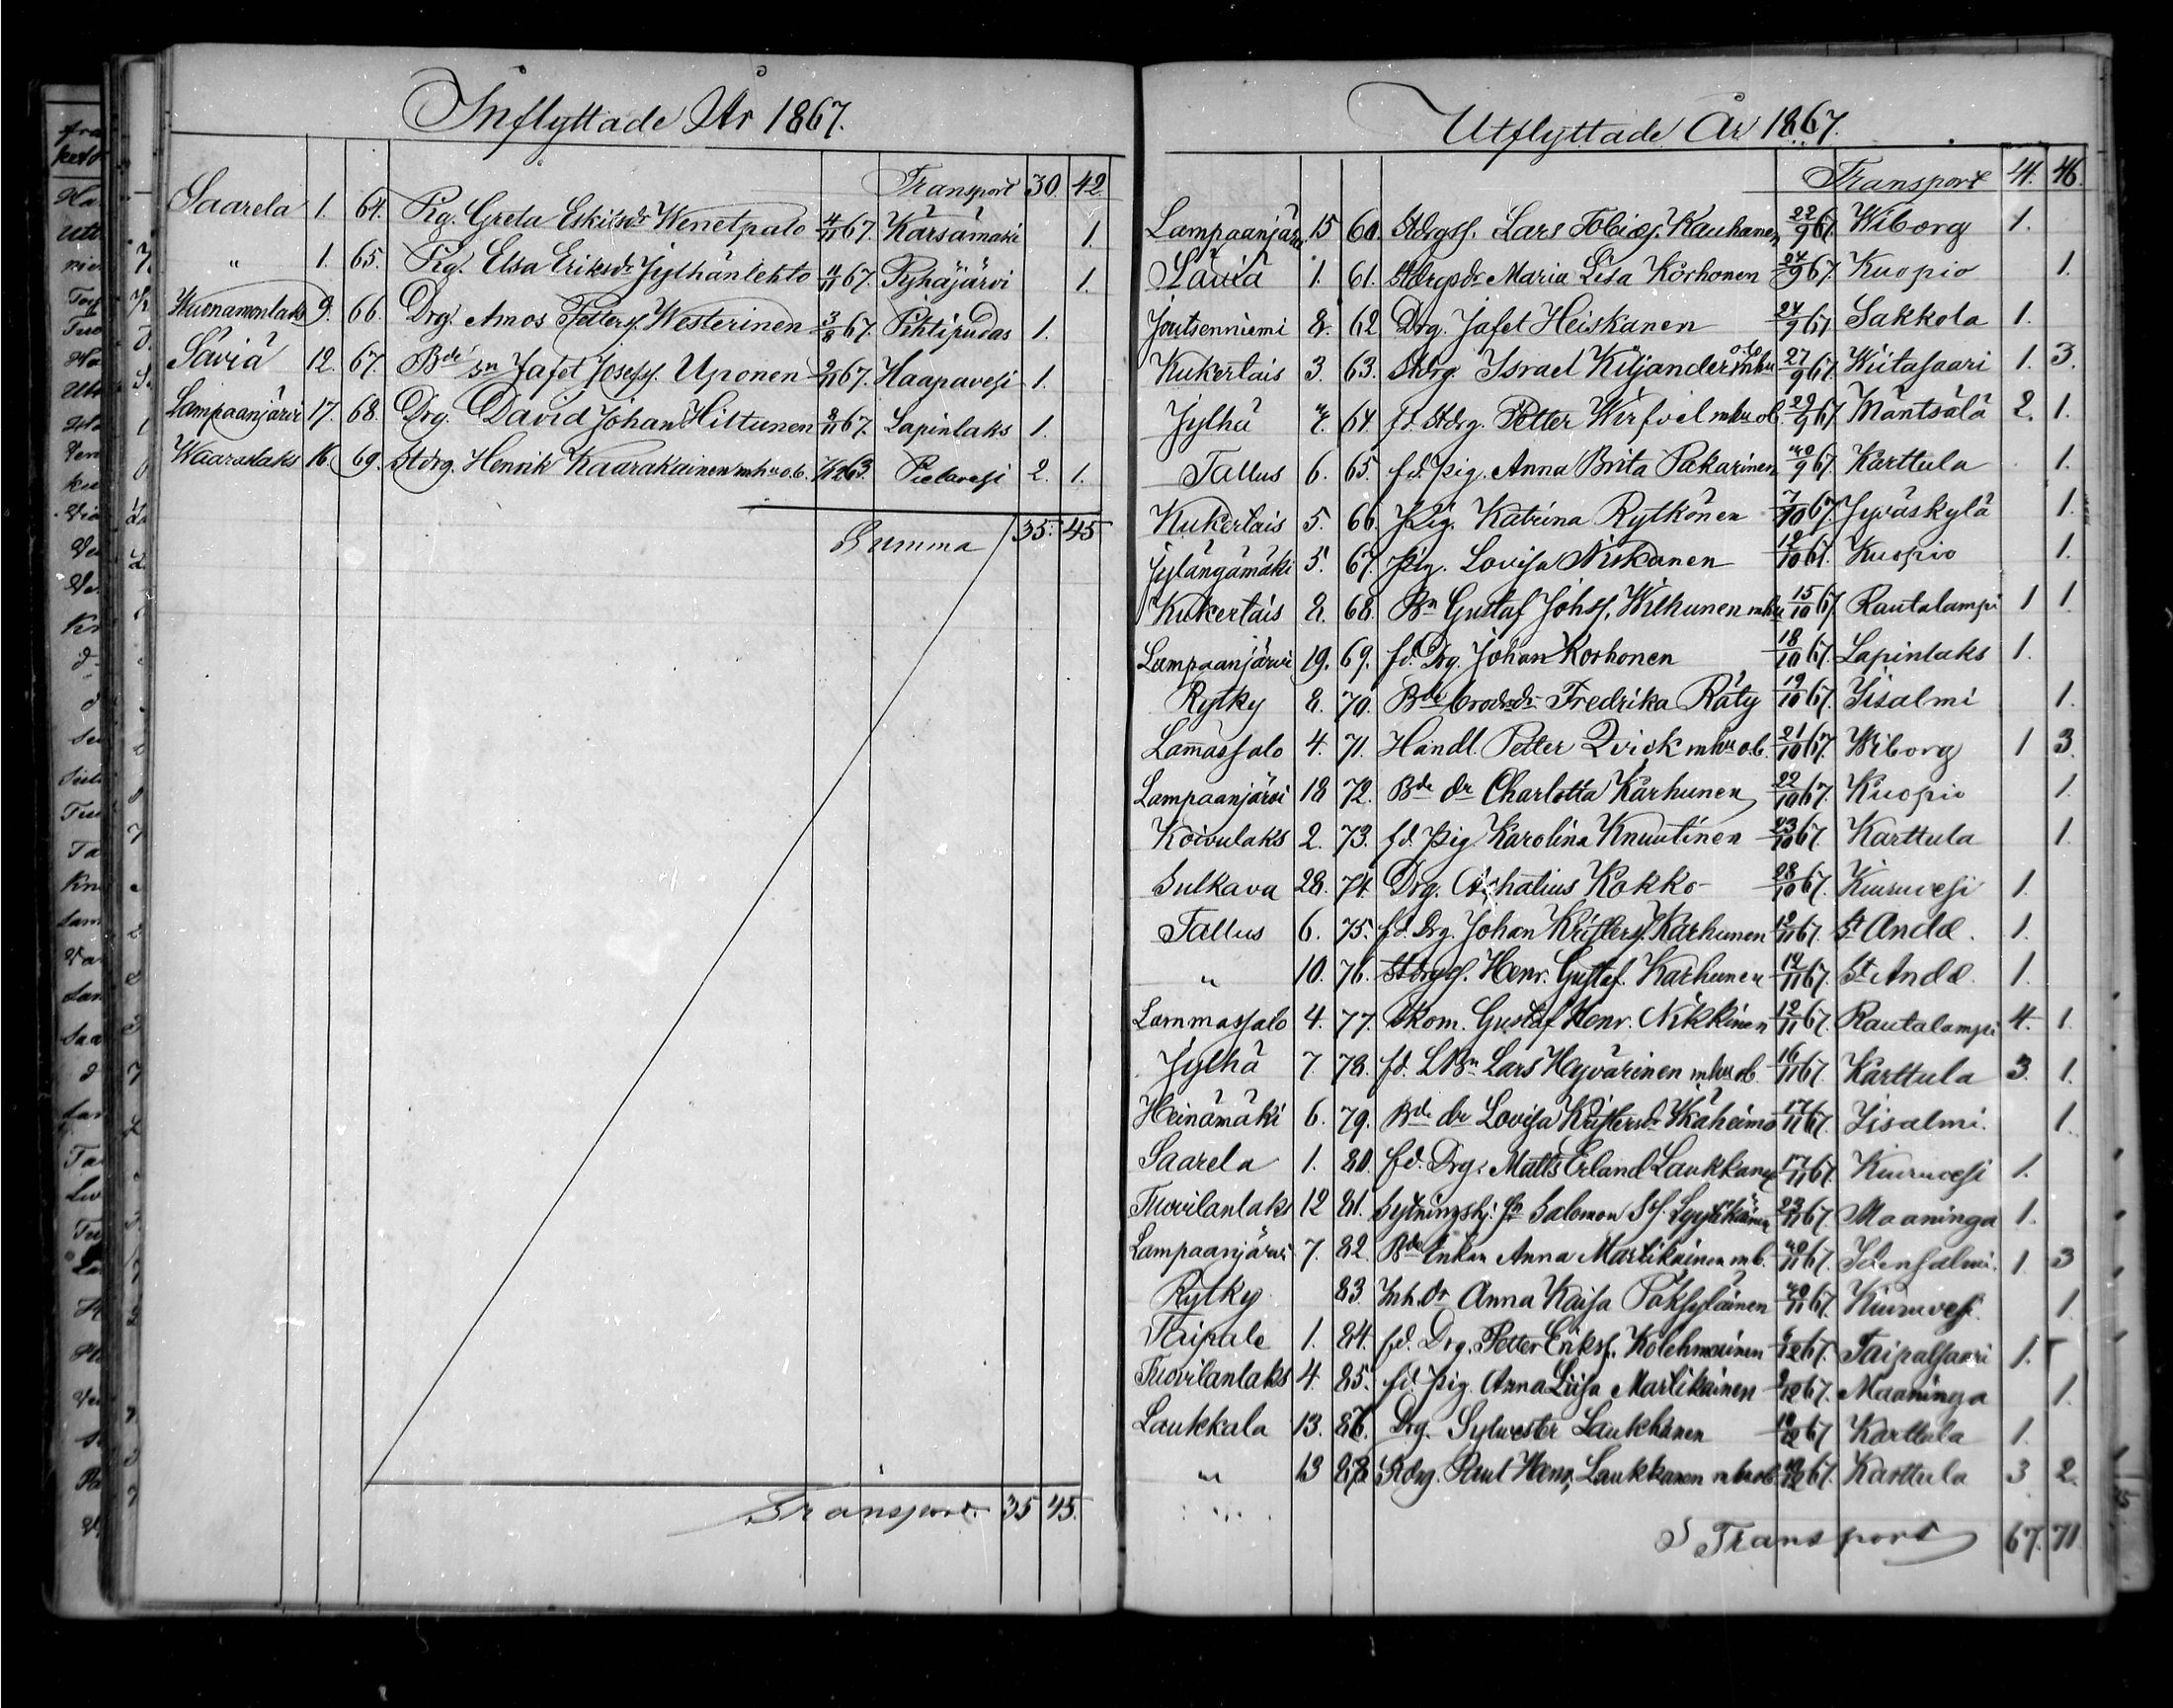 Inflyttade År 1867.
Transport 30. 42.
Saarela 1. 64. Pig. Greta Eskilsdr Wenetpalo 4/11 67. Kärsämäki 1.
" 1. 65. Pig. Elsa Eriksdr Jylhänlehto 4/11 67. Pyhäjärvi 1.
Kuonamonlaks 9. 66. Drg. Amos Petters. Westerinen 3/8 67. Pihtipudas 1.
Säviä 12. 67. Bde sn Jafet Josefs. Uponen 2/11 67. Haapavesi 1.
Lampaanjärvi 17. 68. Drg. David Johan Hiltunen 8/11 67. Lapinlaks 1.
Waaraslaks 16. 69. Stdrg. Henrik Kaarakainen mhuob. Pielavesi 2. 1.
Summa 35. 45
Transport. 35 45.
Utflyttade År 1867.
Transport 41. 46.
Lampaanjärvi 15 60. Stdrgs. Lars Tobias. Kauhanen 22/9 67. Wiborg 1.
Säviä 1. 61. Stdrgsdr Maria Lisa Korhonen 24/9 67. Kuopio 1.
Joutsenniemi 8. 62 Drg. Jafet Heiskanen 24/9 67. Sakkola 1.
Kukertais 3. 63. Stdrg. Israel Kiljander mhu ob 27/9 67. Wiitasaari 1. 3.
Jylhä 4. 64. fd. Stdrg. Petter Wirfvel mhu ob. 29/9 67. Mäntsälä 2. 1.
Tallus 6. 65. fd. pig. Anna Brita Pakarinen 30/9 67. Karttula 1.
Kukertais 5. 66. Pig. Katrina Rytkönen 7/10 67. Jyväskylä 1.
Jylängämäki 5. 67. Pig. Lovisa Niskanen 12/10 67. Kuopio 1.
Kukertais 8. 68. Bn Gustaf Johs. Wilhunen mhu 15/10 67. Rautalampi 1 1.
Lampaanjärvi 19. 69. fd. Drg. Johan Korhonen 18/10 67. Lapinlaks 1.
Rytky 8. 70. Bde brodsdr Fredrika Räty 19/10 67. Iisalmi 1.
Lamassalo 4. 71. Handl. Petter Qvick mhu ob. 21/10 67. Wiborg 1 3.
Lampaanjärvi 18 72. Bde dr Charlotta Karhunen 22/10 67. Kuopio 1.
Koivulaks 2. 73. fd. pig Karolina Knuutinen 23/10 67. Karttula 1.
Sulkava 28. 74. Drg. Achatius Kokko 28/10 67. Kiuruvesi 1.
Tallus 6. 75. fd. Drg. Johan Kristers. Karhunen 12/11 67. St Andd. 1.
" 10. 76. Stdrgs. Henr. Gustaf. Karhunen 12/11 67. St Andd 1.
Lammassalo 4. 77. Skom. Gustaf Henr. Nikkinen 12/11 67. Rautalampi 4. 1.
Jylhä 7 78. fd. LBn Lars Hyvärinen mhu ob. 16/11 67. Karttula 3. 1.
Heinämäki 6. 79. Bde dr Lovisa Kristersdr Wäheimo 17/11 67. Iisalmi. 1.
Saarela 1. 80. fd. Drg. Matts Erland Laukkanen 17/11 67. Kiuruvesi 1.
Tuovilanlaks 12 81. Sytningshj. sn Salomon Lyytikäinen 23/11 67. Maaninga 1.
Lampaanjärvi 7. 82. Bde Enkan Anna Martikainen mb. 30/11 67. Idensalmi. 1. 3
Rytky 83. Inh. dr Anna Kaisa Pöksyläinen 30/11 67. Kiuruvesi. 1.
Taipale 1. 84. fd. Drg. Petter Eriks. Kolehmainen 6/12 67. Taipalsaari 1.
Tuovilanlaks 4. 85. fd. pig. Anna Liisa Martikainen 9/12 67. Maaninga 1.
Laukkala 13. 86. Drg. Sylvester Laukkanen 18/12 67 Karttula 1.
" 13 87. Stdrg. Paul Henr. Laukkanen mhu ob 67. Karttula 3 2.
Transport 67. 71